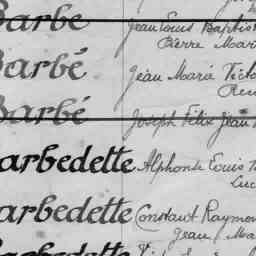 Barbe Jean Louis Baptis
Pierre Mar
Barbé Jean Marie Victo
René
Barbé Joseph Félix Jean
Barbedette Alphonse Louis
Luc
Barbedette Constant Raymon
Jean, Ma